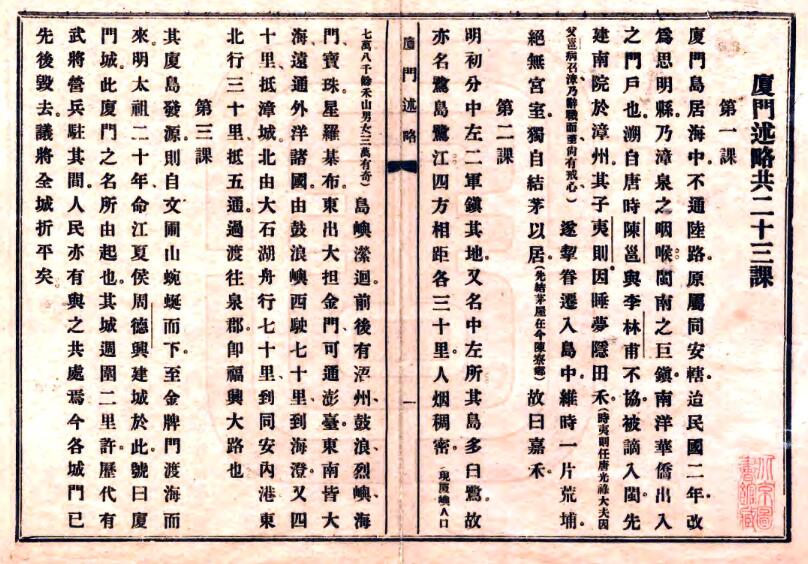 廈門述略共二十三課
第一課
廈門島居海中。不通陸路。原屬同安轄。迨民國二年。改
爲思明縣。乃漳泉之咽喉。閩南之巨鎮。南洋華僑出入
之門戶也。溯自唐時陳邕與李林甫不協。被謫入閩。先
建南院於漳州。其子夷則因睡夢隱田禾。(時夷則任唐光祿大夫因
父邕病召漳乃辭職而重尙有戒心)遂挈眷遷入島中。維時一片荒埔。
絕無宮室。獨自結茅以居。(先結茅屋在今陳寮鄉)故曰嘉禾。
第二課
明初分中左二軍鎮其地。又名中左所。其島多白鷺。故
亦名鷺島鷺江。四方相距各三十里。人烟稠密。(現厦嶼人口
廈門述略
一
七萬八千餘禾山男女三萬有奇)島嶼瀠迴。前後有浯州、鼓浪、烈嶼、海
門、寶珠、星羅棊布。東出大担金門。可通澎臺。東南皆大
海。遠通外洋諸國。由鼓浪嶼西駛七十里。到海澄。又四
十里。抵漳城。北由大石湖舟行七十里。到同安內港。東
北行三十里。抵五通。過渡往泉郡。卽福興大路也
第三課
其廈島發源。則自文圃山蜿蜒而下。至金牌門渡海而
來。明太祖二十年、命江夏侯周德興建城於此。號曰廈
門城。此廈門之名所由起也。其城週圍二里許。歷代有
武將營兵駐其間。人民亦有與之共處焉。今各城門已
先後毀去。議將全城折平矣。